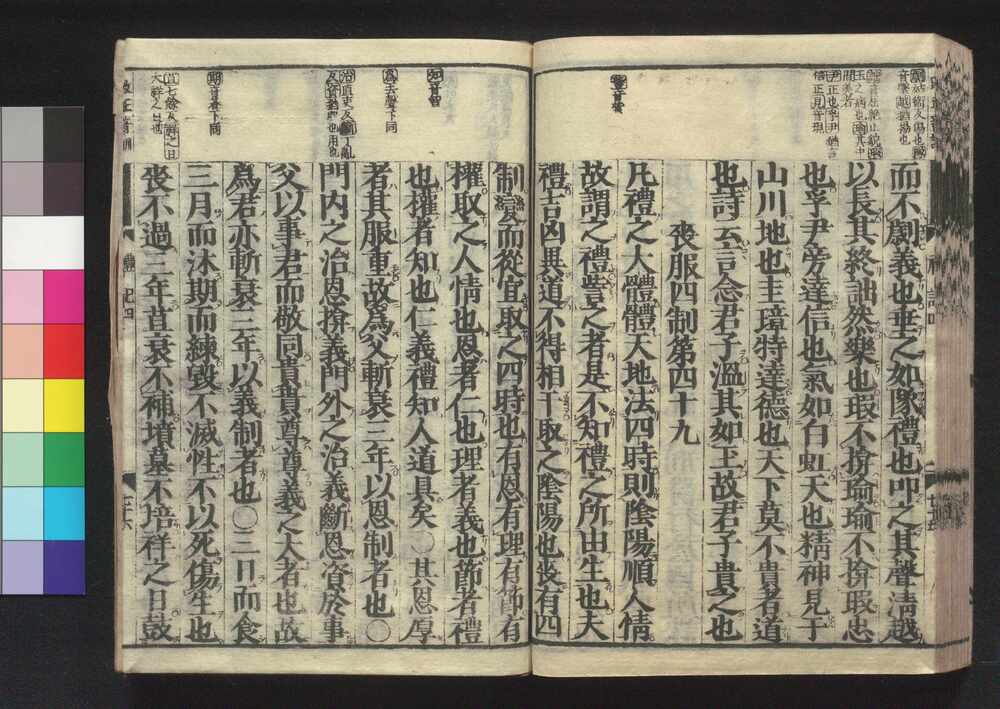 而不劌義也垂之如隊禮也叩之其聲清越
以長其終詘然樂也瑕不揜瑜瑜不揜瑕忠
也孚尹旁達信也氣如白虹天也精神見于
山川地也圭璋特達德也天下莫不貴者道
也詩云言念君子溫其如玉故君子貴之也
喪服四制第四十九
凡禮之大體體天地法四時則陰陽順人情
故謂之禮訾之者是不知禮之所由生也夫
禮吉凶異道不得相干取之陰陽也喪有四
制變而從宜取之四時也有恩有理有節有
權取之人情也恩者仁也理者義也節者禮
也權者知也仁義禮知人道具矣〇其恩厚
者其服重故爲父斬衰三年以恩制者也〇
門內之治恩揜義門外之治義斷恩資於事
父以事君而敬同貴貴尊尊義之大者也故
爲君亦斬衰三年以義制者也〇三日而食
三月而沐期而練毀不滅性不以死傷生也
喪不過三年苴衰不補墳墓不培祥之日鼓
訾音紫
知音智
爲去聲下同
期音朞下同
禮 記四